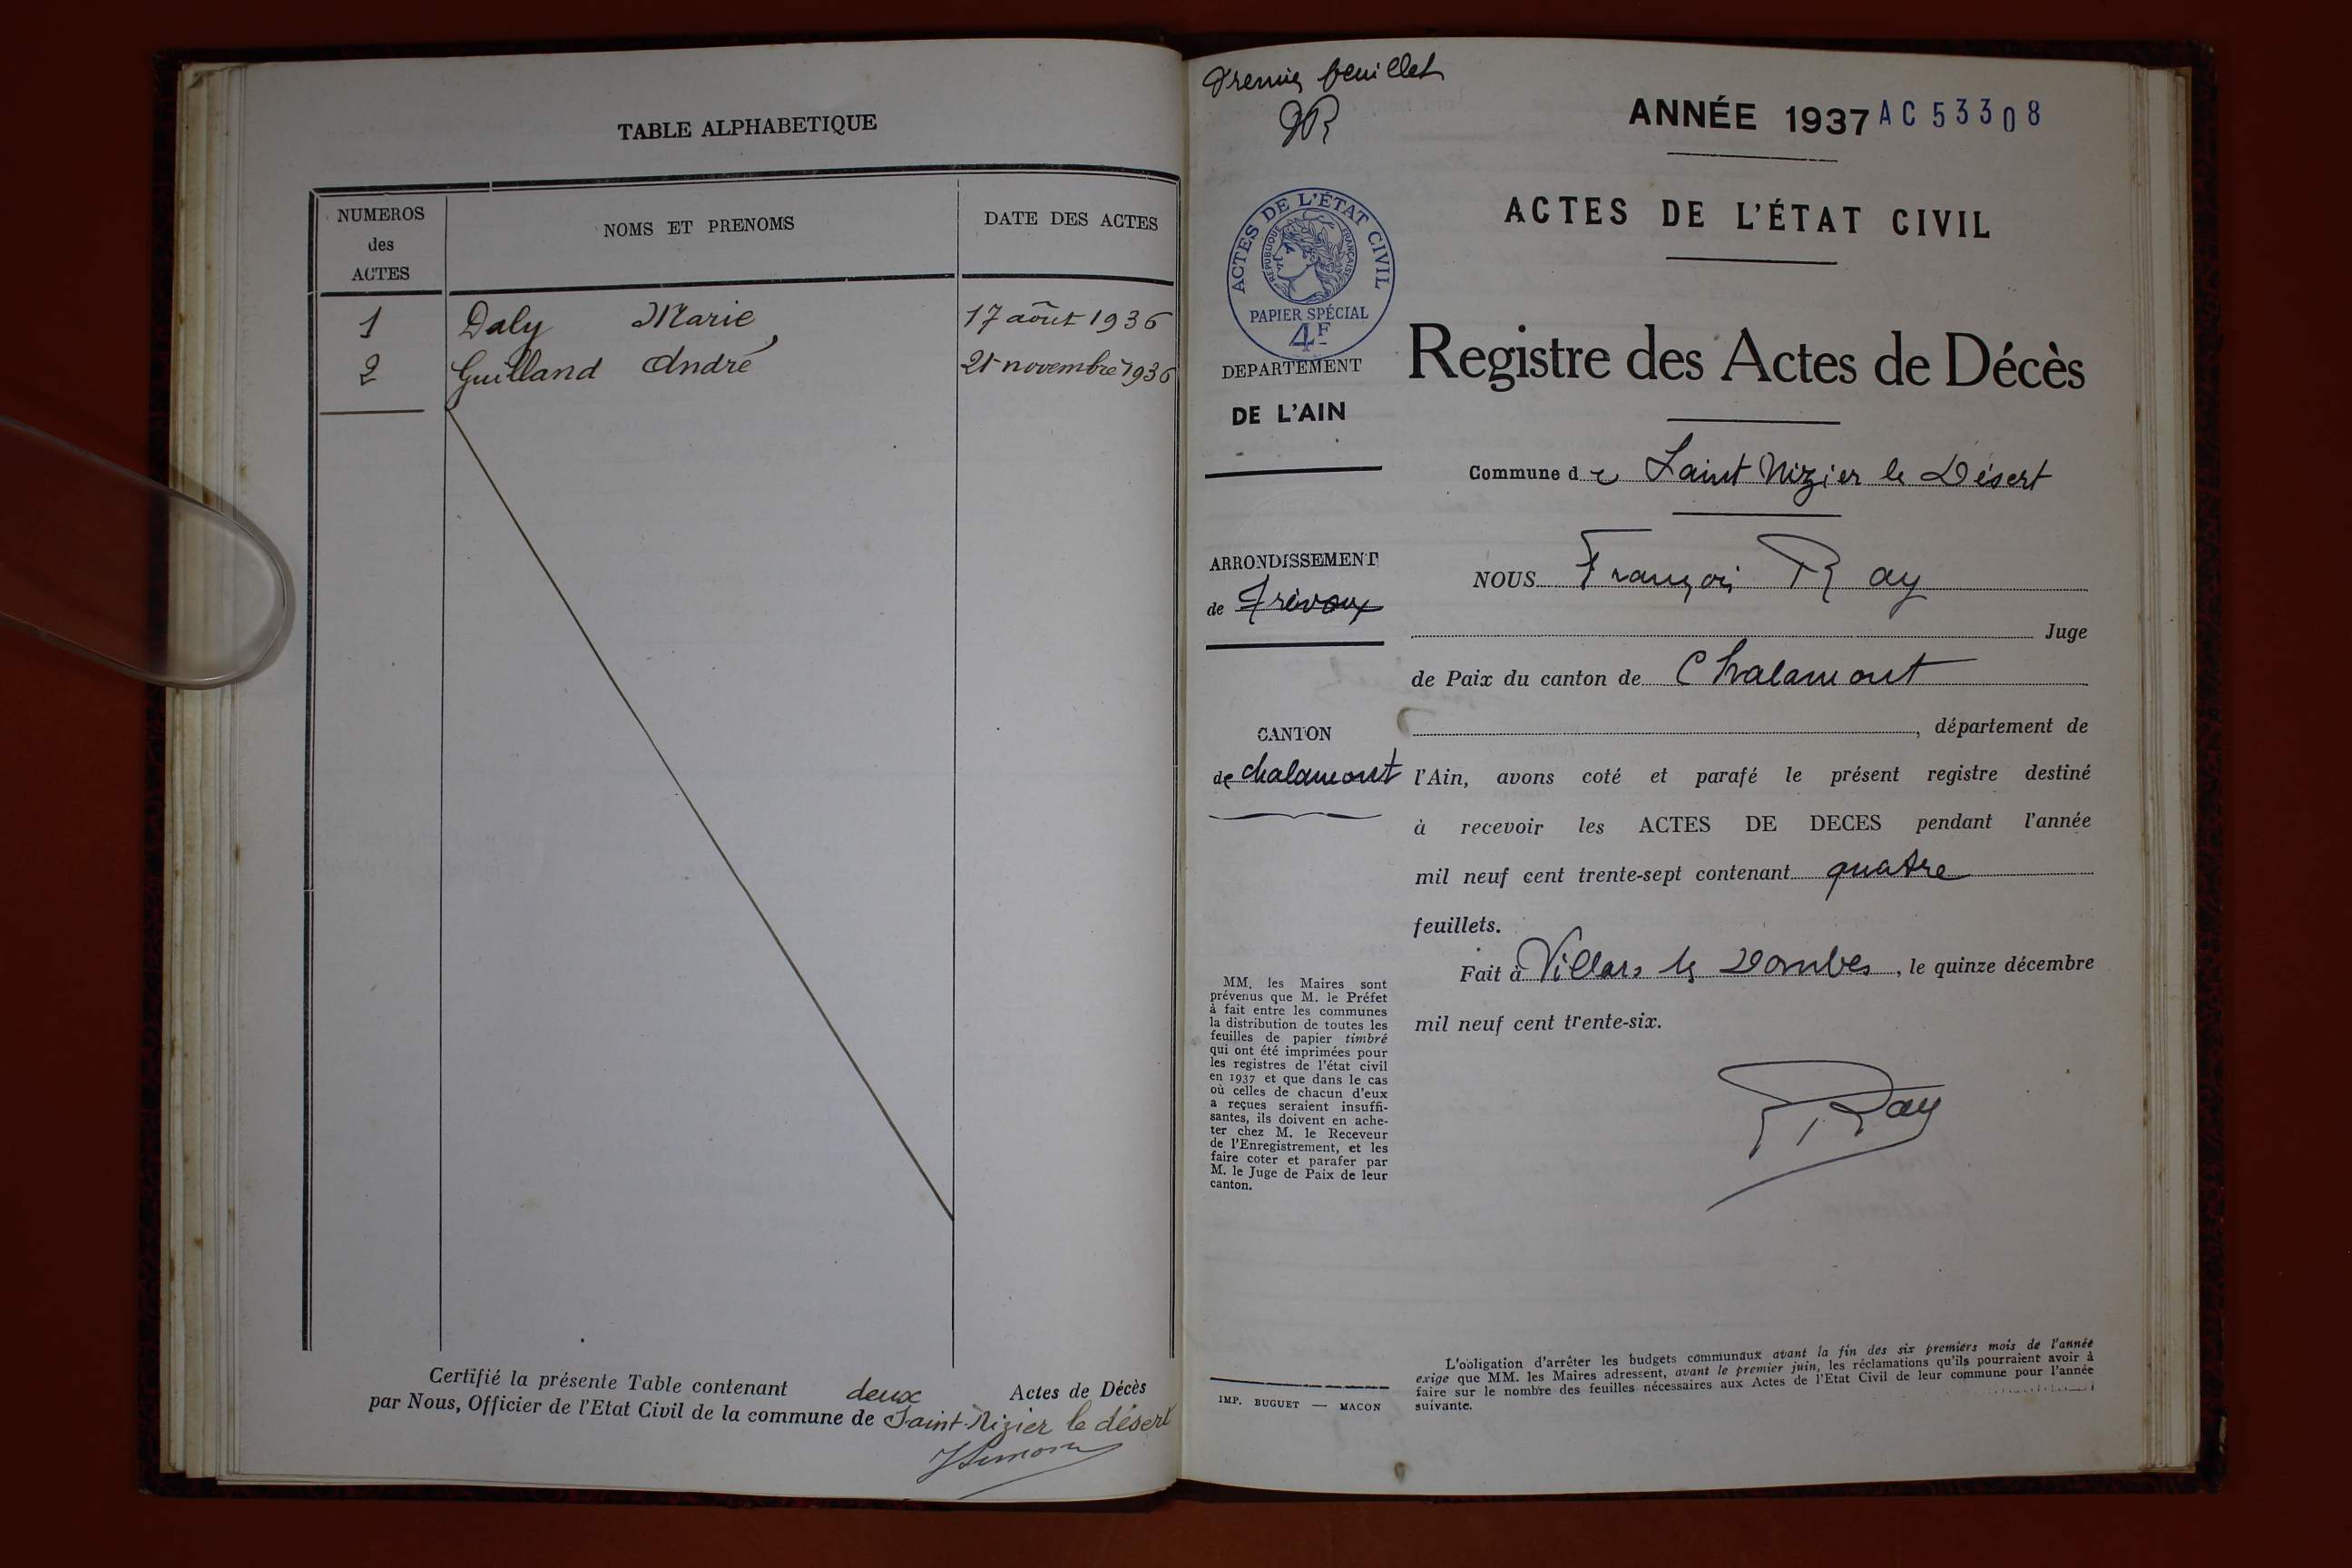 TABLE ALPHABETIQUE
NUMEROS
des
ACTES
NOMS ET PRENOMS
DATE DES ACTES
1 Daly Marie 17 août 1936
2 Guilland André 21 novembre 1936
Certifié la présente Table contenant deux Actes de Décès
par Nous, Officier de l'Etat Civil de la commune de Saint-Nizier le désert
Premier feuillet
ANNÉE 1937 AC 53308
ACTES DE L'ÉTAT CIVIL
RÉPUBLIQUE FRANÇAISE
PAPIER SPÉCIAL
4F
ACTES DE L'ÉTAT CIVIL
DEPARTEMENT
DE L'AIN
Registre des Actes de Décès
Commune de Saint Nizier le Désert
ARRONDISSEMENT
de Trévoux
CANTON
de chalamont
MM. les Maires sont
prévenus que M. le Préfet
à fait entre les communes
la distribution de toutes les
feuilles de papier timbré
qui ont été imprimées pour
les registres de l'état civil
en 1937 et que dans le cas
où celles de chacun d'eux
a reçues seraient insuffi-
santes, ils doivent en ache-
ter chez M. le Receveur
de l'Enregistrement, et les
faire coter et parafer par
M. le Juge de Paix de leur
canton.
IMP. BUGUET — MACON
NOUS François Ray
Juge
de Paix du canton de Chalamont
, département de
l'Ain, avons coté et parafé le présent registre destiné
à recevoir les ACTES DE DECES pendant l'année
mil neuf cent trente-sept contenant quatre
feuillets.
Fait à Villars les Dombes, le quinze décembre
mil neuf cent trente-six.
Ray
L'obligation d'arrêter les budgets communaux avant la fin des six premiers mois de l'année
exige que MM. les Maires adressent, avant le premier juin, les réclamations qu'ils pourraient avoir à
faire sur le nombre des feuilles nécessaires aux Actes de l'Etat Civil de leur commune pour l'année
suivante.